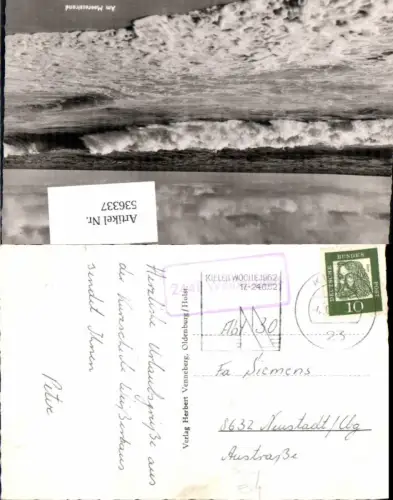 Am Meeresstrand
Artikel Nr.
536337
Herzliche Urlaubsgrüße aus
der Kurzschule Weißenhaus
sendet Ihnen
Peter
Verlag Herbert Venneberg, Oldenburg/Holst.
KIELER WOCHE 1962
17.-24.6.62
DEUTSCHE
BUNDESPOST
10
23
Abt. 30
Fa Siemens
8632 Neustadt/Cbg
Austraße